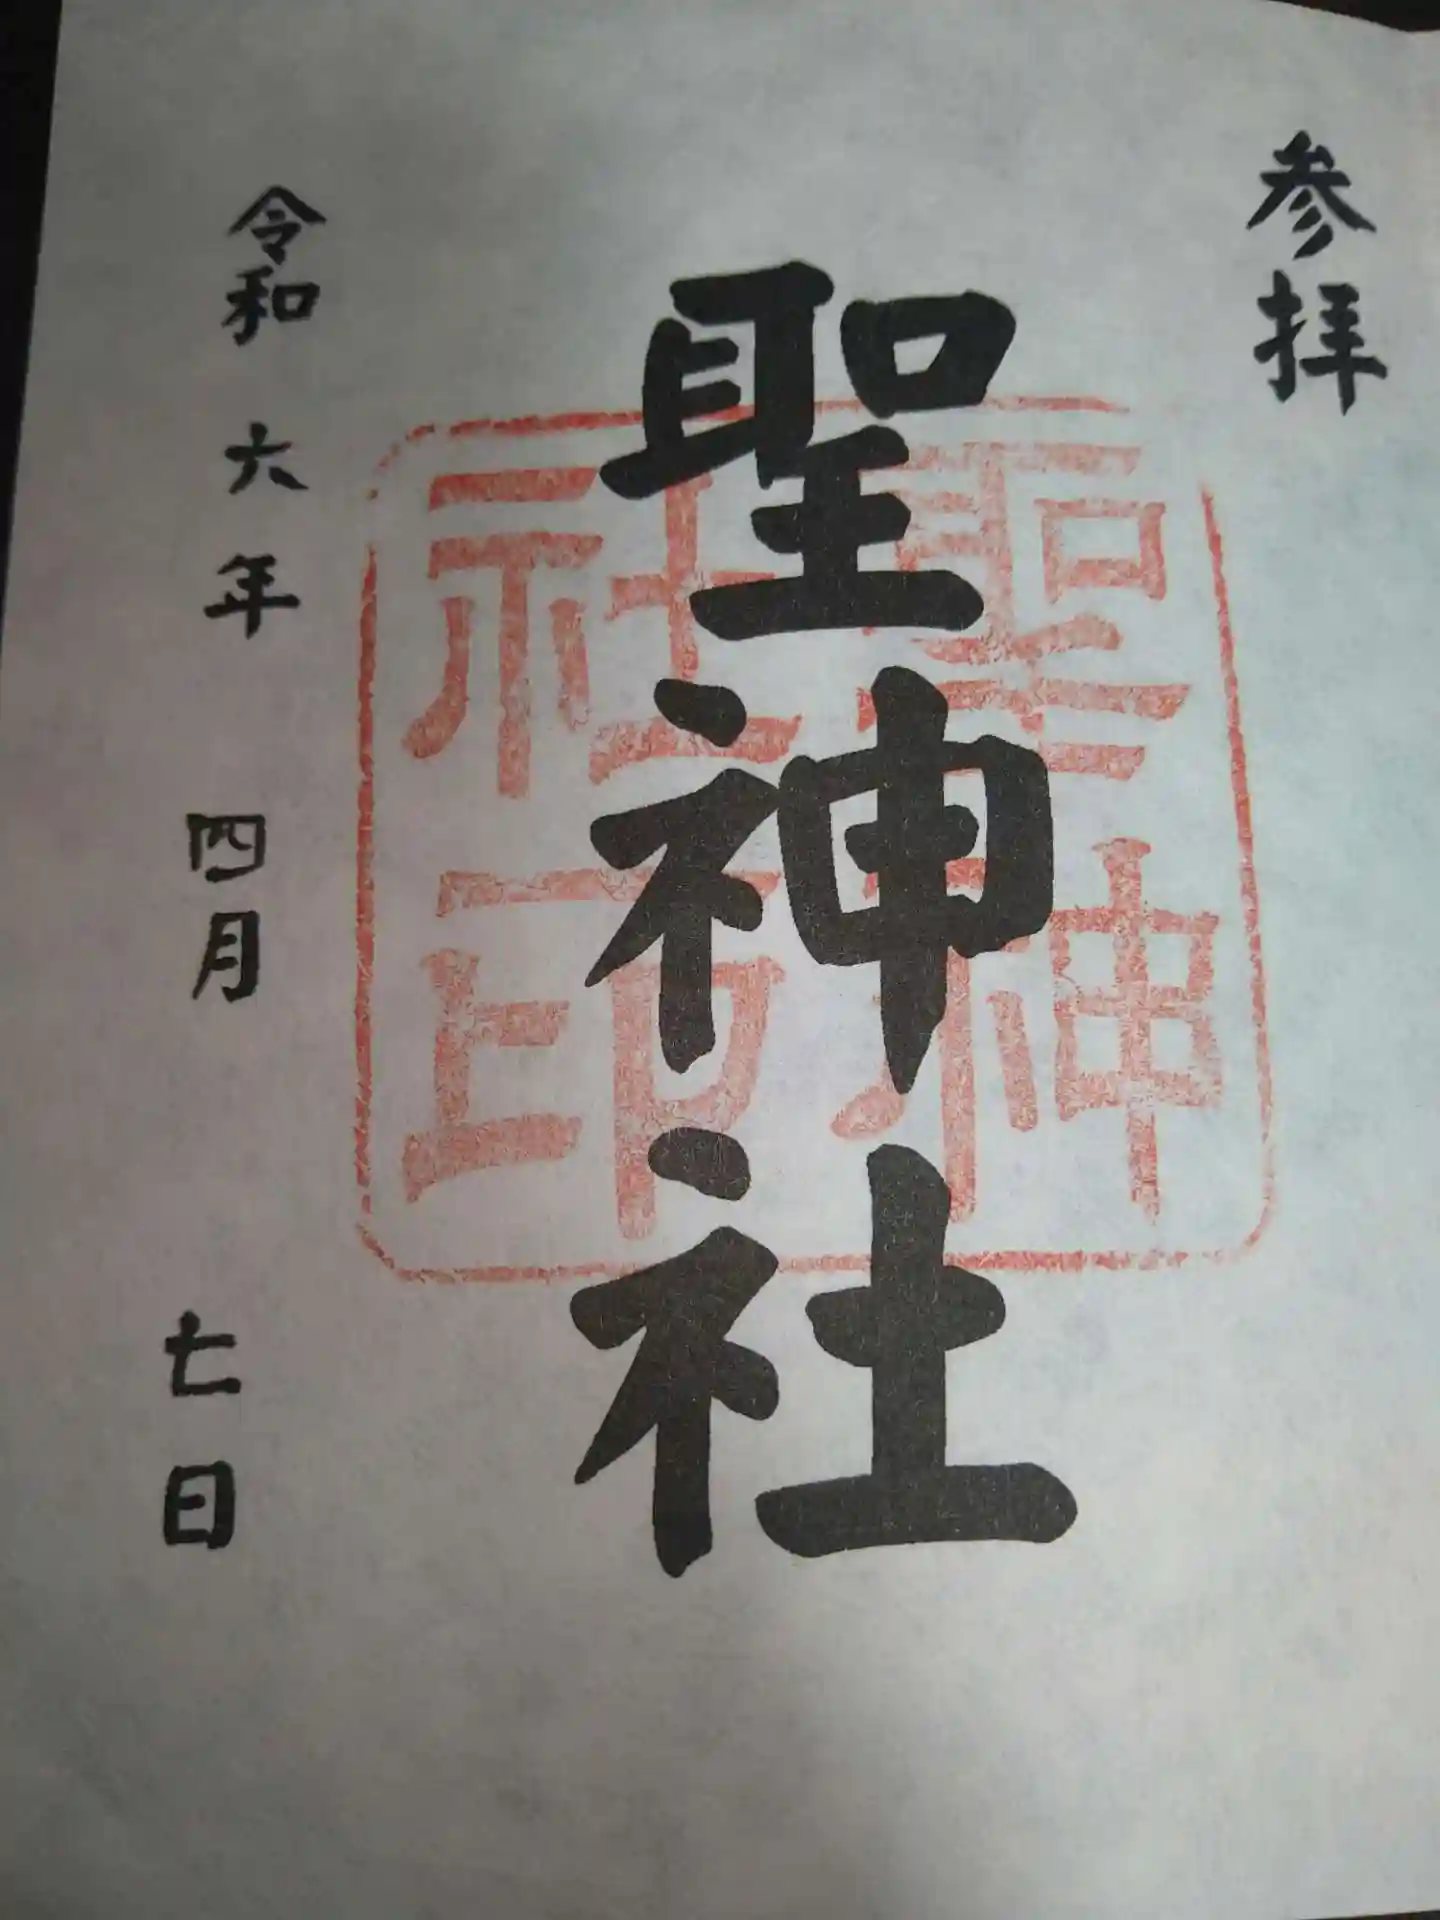 参拝
聖神社
聖神
社印
令和六年四月七日